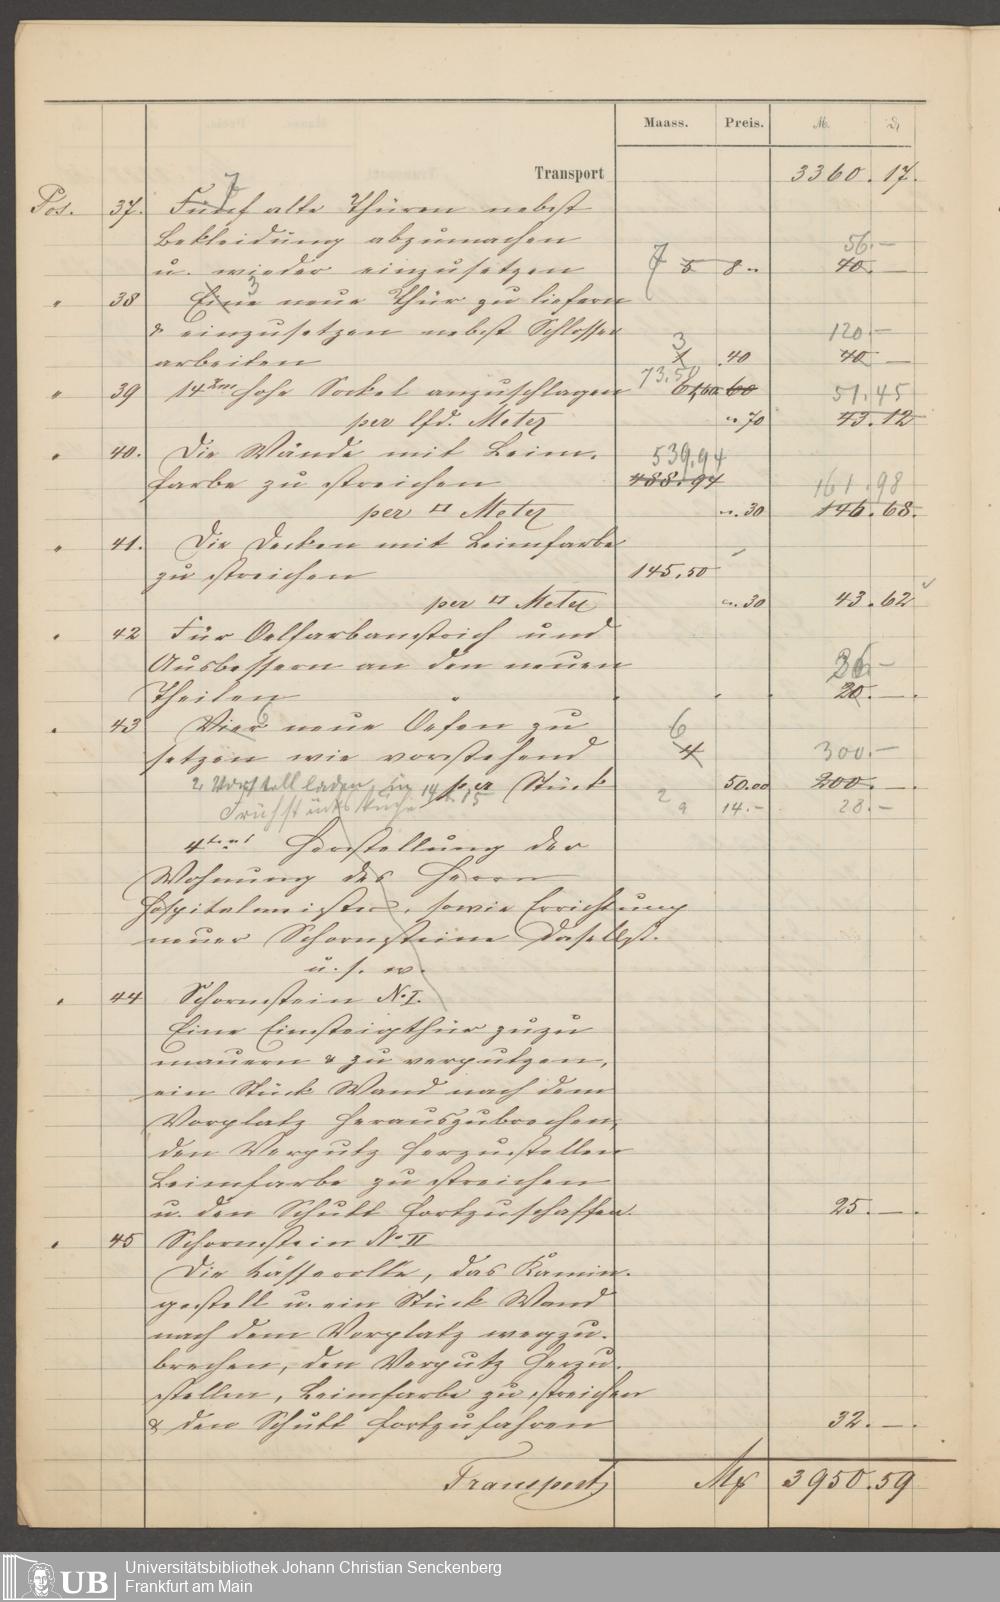 Maass. Preis. M. ₰
Transport 3360. 17.
Pos. 37. Fünf 7 alte Thüren nebst
Bekleidung abzumachen 56.—
u. wieder einzusetzen 7 5 8 „ 40. —
„ 38 Eine 3 neue Thür zu liefern
& einzusetzen nebst Schlosser 120.—
arbeiten 3 1 .40 40 —
„ 39 14 hohe Sockel anzuschlagen 73.50 61,60 60 51.45
per lfd. Meter „ 70 43.12
„ 40. Die Wände mit Leim- 539.94
farbe zu streichen 488.94 161.98
per □ Meter „. 30 146.68.
„ 41. Die Decken mit Leimfarbe
zu streichen 145.50
per □ Meter „. 30 43.62
„ 42 Für Oelfarbanstrich und
Ausbessern an den neuen 36.—
Theilen 20. —.
„ 43 Vier 6 neue Oefen zu 6
setzen wie vorstehend 4 300.—
per Stück 50.00 200. —.
2 Vorstellladen in 14 & 15
Frühstücksküche 2 a 14.— 28.—
4tens Herstellung der
Wohnung des Herrn
Hospitalmeister, sowie Errichtung
neuer Schornsteine daselbst.
u. s. w.
„ 44 Schornstein No I.
Eine Einsteigthür zuzu
mauern & zu verputzen,
ein Stück Wand nach dem
Vorplatz herauszubrechen,
den Verputz herzustellen
Leimfarbe zu streichen
u. den Schutt fortzuschaffen. 25. —.
„ 45 Schornstein No II
Die Kasserolle, das Kamin-
gestell u. ein Stück Wand
nach dem Vorplatz wegzu-
brechen, den Verputz herzu-
stellen, Leimfarbe zu streichen
& den Schutt fortzufahren 32. —.
Transport M 3950.59
UB Universitätsbibliothek Johann Christian Senckenberg
Frankfurt am Main